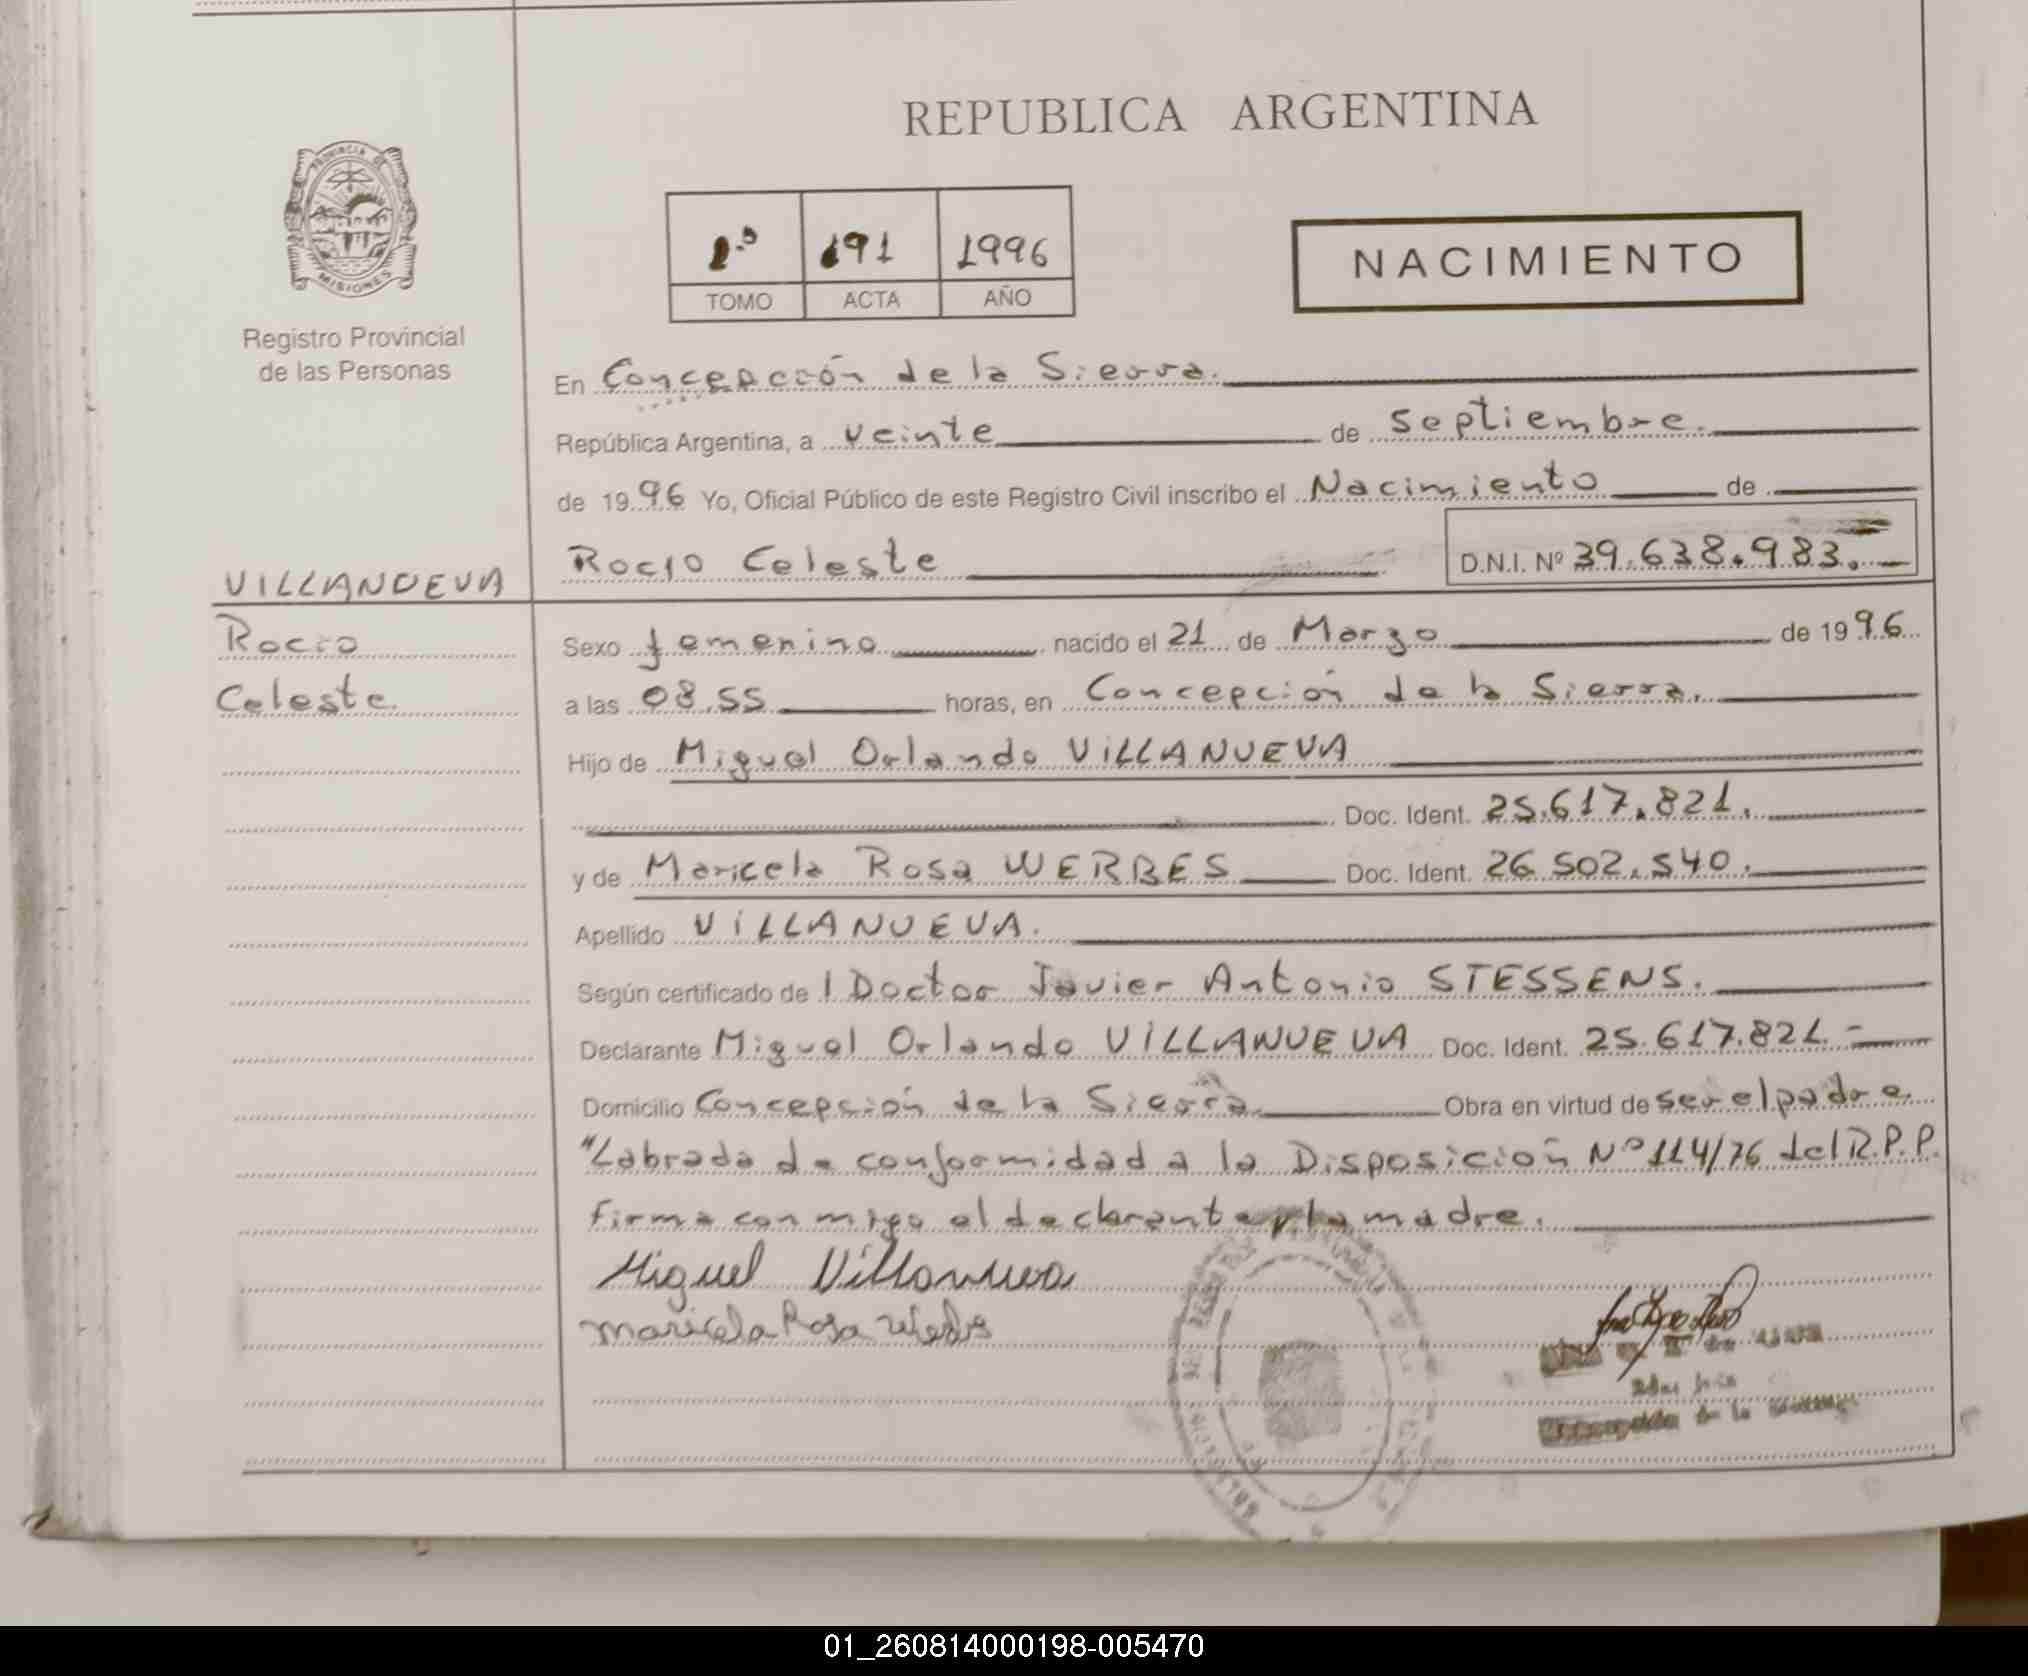 REPUBLICA ARGENTINA
PROVINCIA DE
MISIONES
Registro Provincial
de las Personas
1.º 191 1996
TOMO ACTA AÑO
NACIMIENTO
En Concepción de la Sierra.
República Argentina, a veinte de septiembre.
de 1996 Yo, Oficial Público de este Registro Civil inscribo el Nacimiento de
Rocio Celeste D.N.I. Nº 39.638.983.
VILLANUEVA
Rocio
Celeste.
Sexo femenino nacido el 21 de Marzo de 1996
a las 08.55 horas, en Concepción de la Sierra.
Hijo de Miguel Orlando VILLANUEVA
Doc. Ident. 25.617.821.
y de Maricela Rosa WERBES Doc. Ident. 26.502.540.
Apellido VILLANUEVA.
Según certificado de l Doctor Javier Antonio STESSENS.
Declarante Miguel Orlando VILLANUEVA Doc. Ident. 25.617.821.-
Domicilio Concepción de la Sierra Obra en virtud de ser el padre.
"Labrada de conformidad a la Disposición Nº 114/76 del R.P.P.
firma con migo el declarante y la madre.
Miguel Villanueva
Maricela Rosa
de la
01_260814000198-005470